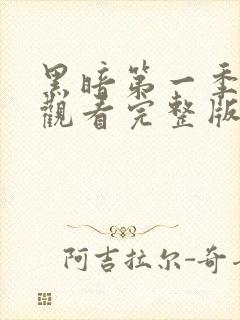 黑暗第一季
觀看完整版
阿吉拉尔-奇